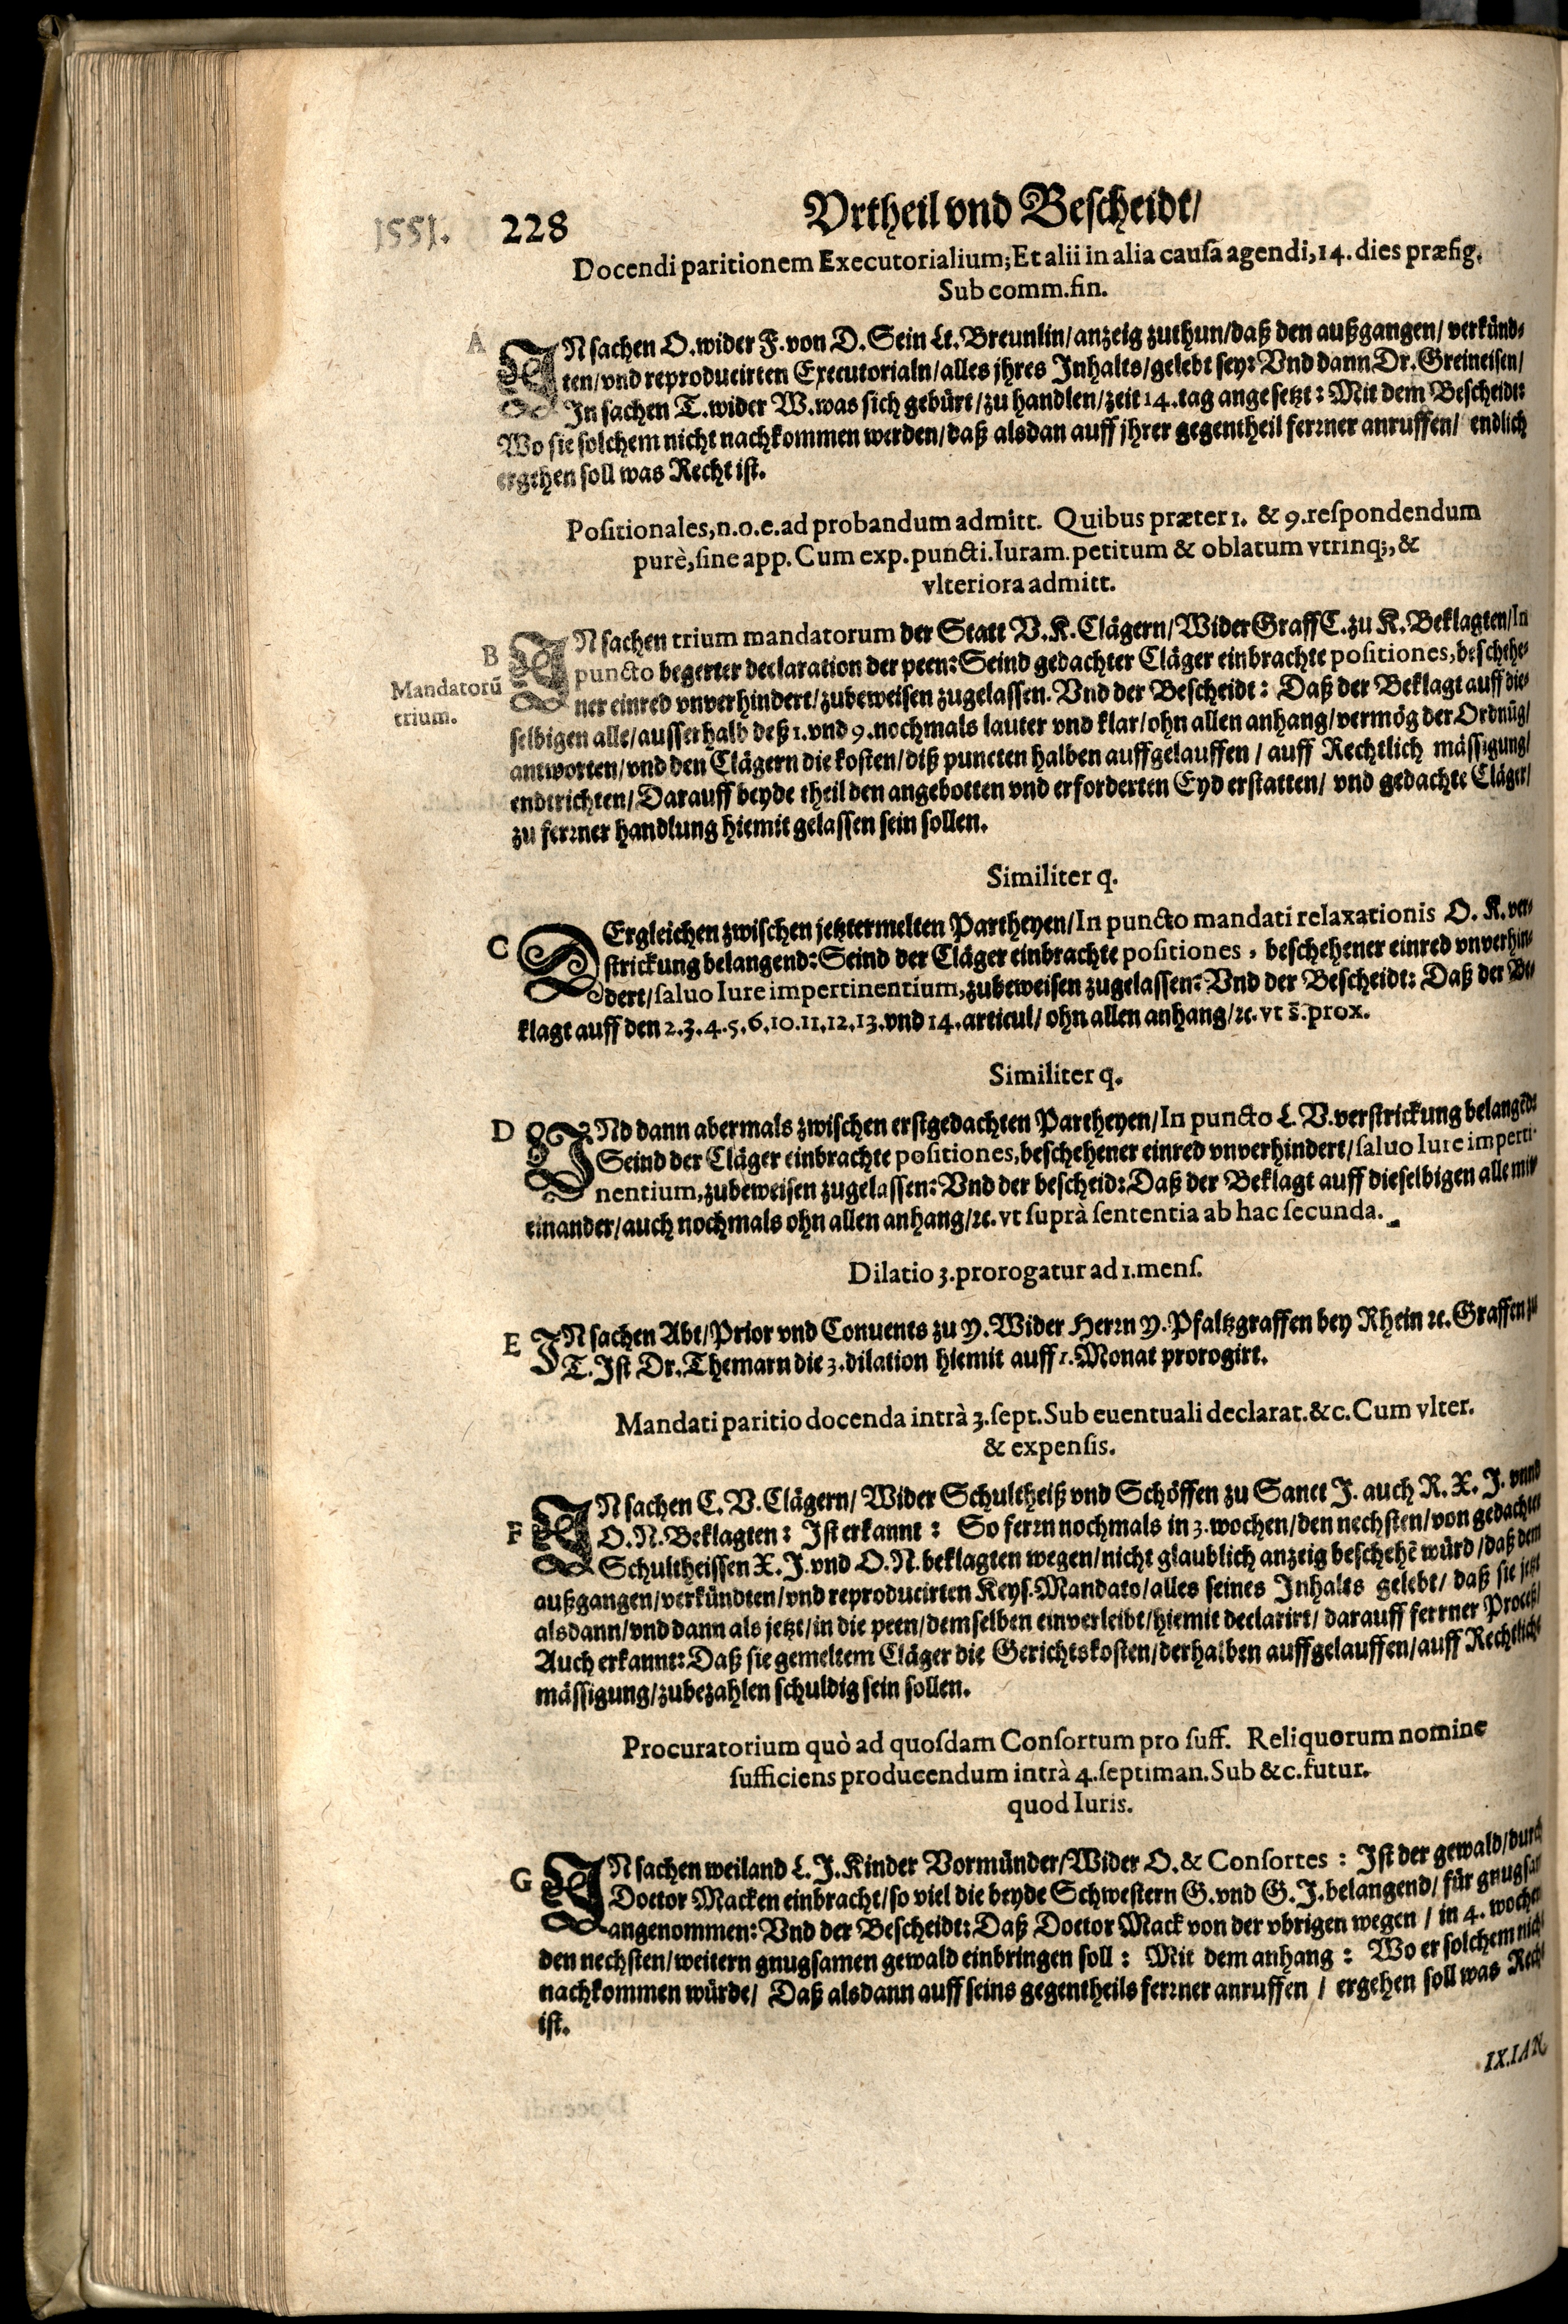 1551. 228 Vrtheil vnd Bescheidt/
Docendi paritionem Executorialium; Et alii in alia causa agendi, 14. dies præfig.
Sub comm. fin.
A
IN sachen O. wider F. von D. Sein Lt. Breunlin/ anzeig zuthun/ daß den außgangen/ verkünd-
ten/ vnd reproducirten Executorialn/ alles jhres Inhalts/ gelebt sey: Vnd dann Dr. Greineisen/
In sachen T. wider W. was sich gebürt/ zu handlen/ zeit 14. tag angesetzt: Mit dem Bescheidt:
Wo sie solchem nicht nachkommen werden/ daß alsdan auff jhrer gegentheil ferrner anruffen/ endlich
ergehen soll was Recht ist.
Positionales, n. o. e. ad probandum admitt. Quibus præter 1. & 9. respondendum
purè, sine app. Cum exp. puncti. Iuram. petitum & oblatum vtrinq;, &
vlteriora admitt.
B
Mandatorũ
trium.
IN sachen trium mandatorum der Statt V. K. Clägern/ Wider Graff C. zu K. Beklagten/ In
puncto begerter declaration der peen: Seind gedachter Cläger einbrachte positiones, beschehe-
ner einred vnverhindert/ zubeweisen zugelassen. Vnd der Bescheidt: Daß der Beklagt auff die-
selbigen alle/ ausserhalb deß 1. vnd 9. nochmals lauter vnd klar/ ohn allen anhang/ vermög der Ordnũg/
antworten/ vnd den Clägern die kosten/ diß puncten halben auffgelauffen/ auff Rechtlich mässigung/
endtrichten/ Darauff beyde theil den angebotten vnd erforderten Eyd erstatten/ vnd gedachte Cläger/
zu ferrner handlung hiemit gelassen sein sollen.
Similiter q.
C
DErgleichen zwischen jetztermelten Partheyen/ In puncto mandati relaxationis O. K. ver-
strickung belangend: Seind der Cläger einbrachte positiones, beschehener einred vnverhin-
dert/ saluo Iure impertinentium, zubeweisen zugelassen: Vnd der Bescheidt: Daß der Be-
klagt auff den 2. 3. 4. 5. 6. 10. 11. 12. 13. vnd 14. articul/ ohn allen anhang/ ꝛc. vt s̃. prox.
Similiter q.
D
VNd dann abermals zwischen erstgedachten Partheyen/ In puncto L. V. verstrickung belangẽd:
Seind der Cläger einbrachte positiones, beschehener einred vnverhindert/ saluo Iure imperti-
nentium, zubeweisen zugelassen: Vnd der bescheid: Daß der Beklagt auff dieselbigen alle mit
einander/ auch nochmals ohn allen anhang/ ꝛc. vt suprà sententia ab hac secunda.
Dilatio 3. prorogatur ad 1. mens.
E
IN sachen Abt/ Prior vnd Conuents zu Y. Wider Herrn Y. Pfaltzgraffen bey Rhein ꝛc. Graffen zu
T. Ist Dr. Themarn die 3. dilation hiemit auff 1. Monat prorogirt.
Mandati paritio docenda intrà 3. sept. Sub euentuali declarat. &c. Cum vlter.
& expensis.
F
IN sachen C. V. Clägern/ Wider Schultheiß vnd Schöffen zu Sanct J. auch R. X. J. vnnd
O. N. Beklagten: Ist erkannt: So ferrn nochmals in 3. wochen/ den nechsten/ von gedachten
Schultheissen X. J. vnd O. N. beklagten wegen/ nicht glaublich anzeig beschehẽ würd/ daß dem
außgangen/ verkündten/ vnd reproducirten Keys. Mandato/ alles seines Inhalts gelebt/ daß sie jetzt
alsdann/ vnd dann als jetzt/ in die peen/ demselben einverleibt/ hiemit declarirt/ darauff ferrner Proceß/
Auch erkannt: Daß sie gemeltem Cläger die Gerichtskosten/ derhalben auffgelauffen/ auff Rechtlich
mässigung/ zubezahlen schuldig sein sollen.
Procuratorium quò ad quosdam Consortum pro suff. Reliquorum nomine
sufficiens producendum intrà 4. septiman. Sub &c. futur.
quod Iuris.
G
IN sachen weiland L. J. Kinder Vormünder/ Wider O. & Consortes: Ist der gewald/ durch
Doctor Macken einbracht/ so viel die beyde Schwestern G. vnd G. J. belangend/ für gnugsam
angenommen: Vnd der Bescheidt: Daß Doctor Mack von der vbrigen wegen/ in 4. wochen
den nechsten/ weitern gnugsamen gewald einbringen soll: Mit dem anhang: Wo er solchem nicht
nachkommen würde/ Daß alsdann auff seins gegentheils ferrner anruffen/ ergehen soll was Recht
ist.
IX. IAN.